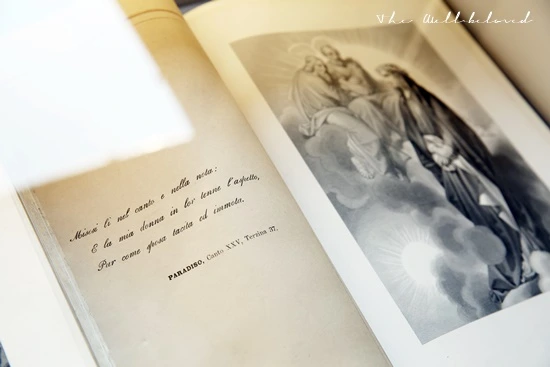 The Well-beloved
Misesi lì nel canto e nella nota:
E la mia donna in lor tenne l'aspetto,
Pur come sposa tacita ed immota.
PARADISO, Canto XXV, Terzina 37.